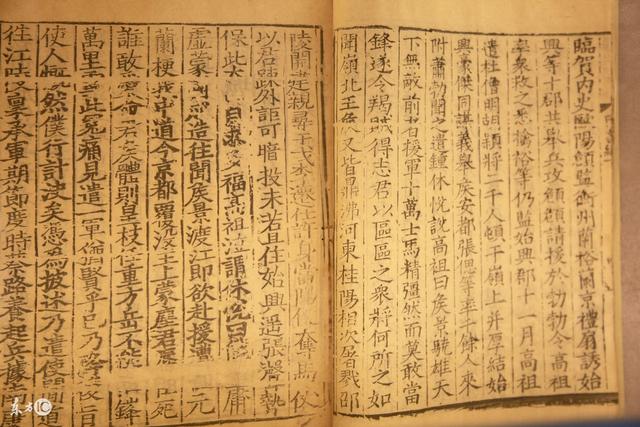 臨賀內史歐陽頠監衡州蘭裕蘭京禮扇誘始
興等十郡共舉兵攻頠頠請援於勃勃令高祖
率衆救之悉擒裕等仍監始興郡十一月高祖
遣杜僧明胡穎將二千人頓于嶺上并厚結始
興豪傑同謀義舉侯安都張偲等率千餘人來
附蕭勃聞之遣鍾休悅說高祖曰侯景驍雄天
下無敵前者援軍十萬士馬精彊然而莫敢當
鋒遂令羯賊得志君以區區之衆將何所之如
聞嶺北王侯又皆鼎沸河東桂陽相次屠戮邵
陵開建親尋干戈李遷仕許身當陽便奪馬仗
以君疎外詎可暗投未若且住始興遙張聲勢
保此太山自求多福高祖泣謂休悅曰庸
虛蒙國成造往聞侯景渡江即欲赴援遭元
蘭梗我中道今京都覆沒主上蒙塵君辱臣死
誰敢愛命君侯體則皇枝任重方岳不能摧鋒
萬里雪此冤痛見遣一軍猶賢乎已乃降後旨
使人慨然僕行計決矣憑為披述乃遣使間道
往江陵稟承軍期節度時蔡路養起兵據南康
東方IC